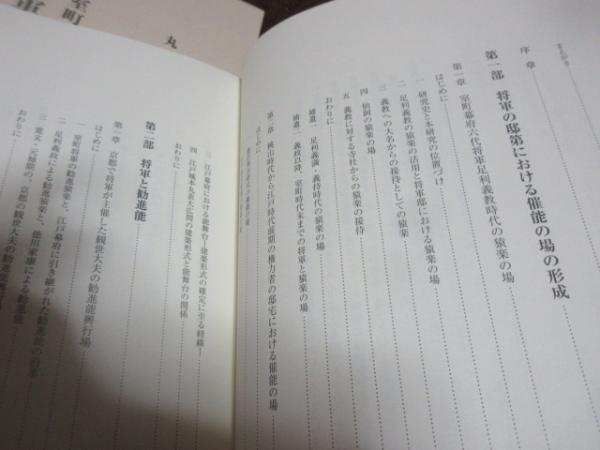 まえがき
序章
第一部 将軍の邸第における催能の場の形成
第一章 室町幕府六代将軍足利義教時代の猿楽の場
はじめに
一 研究史と本研究の位置づけ
二 足利義教の猿楽の活用と将軍邸における猿楽の場
三 義教への大名からの接待としての猿楽
四 仙洞の猿楽の場
五 義教に対する寺社からの猿楽の接待
おわりに
補遺一 足利義満・義持時代の猿楽の場
補遺二 義政以降、室町時代末までの将軍と猿楽の場
第二章 桃山時代から江戸時代前期の権力者の邸宅における催能の場
はじめに
三 江戸幕府における能舞台―建築形式の確定に至る経緯―
四 江戸城本丸表大広間の建築形式と能舞台の関係
おわりに
第二部 将軍と勧進能
第一章 京都で将軍が主催した観世大夫の勧進能興行場
はじめに
一 室町将軍の勧進猿楽と、江戸幕府に引き継がれた勧進能の
二 足利義政による勧進猿楽と、徳川家康による勧進能
三 寛文・元禄際の、京都の観世大夫の勧進能
おわりに
室町
丸